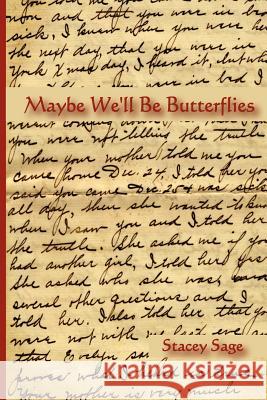 you told me you came
sick, I knew when you were in bed
the next day, that you were in
York X mas day, I heard it, but what
you were in bed I
Maybe We'll Be Butterflies
went coming
you were not telling the truth
When your mother told me you
came home Dec. 24, I told her you
said you came Dec 25 & was sick
all day, then she wanted to know
when I saw you and I told her
the truth. She asked me if you
had another girl, I told her yes
she asked who she was,
several other questions and I
told her. I also told her that you
were not with me last eve and
that Evelyn se
proves who
Stacey Sage
Your mother is very much